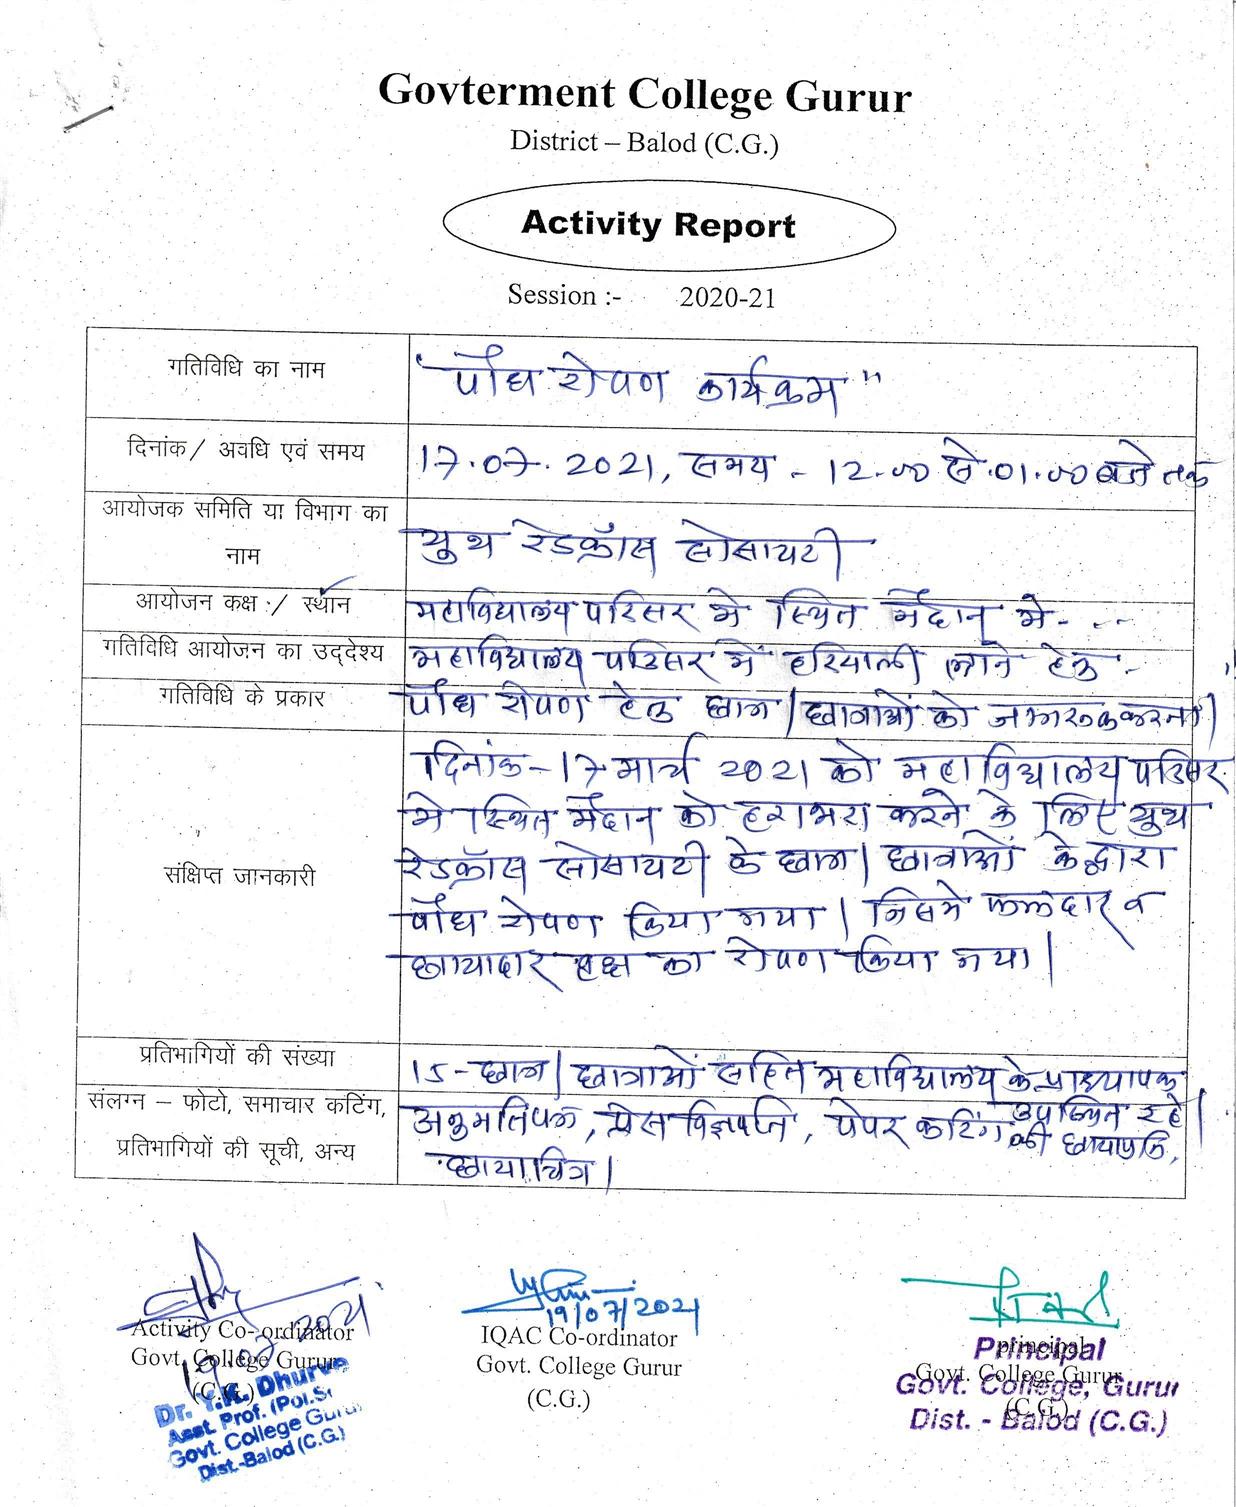 Govterment College Gurur
District – Balod (C.G.)
Activity Report
Session :- 2020-21
गतिविधि का नाम
"पौध रोपण कार्यक्रम"
दिनांक/ अवधि एवं समय
17.07.2021, समय - 12.00 से 01.00 बजे तक
आयोजक समिति या विभाग का
नाम
युथ रेडक्रॉस सोसायटी
आयोजन कक्ष :/ स्थान
महाविद्यालय परिसर मे स्थित मैदान मे- ...
गतिविधि आयोजन का उद्देश्य
महाविद्यालय परिसर में हरियाली लाने हेतु -
गतिविधि के प्रकार
पौध रोपण हेतु छात्र/छात्राओं को जागरूक करना।
संक्षिप्त जानकारी
दिनांक-17 मार्च 2021 को महाविद्यालय परिसर
मे स्थित मैदान को हराभरा करने के लिए युथ
रेडक्रॉस सोसायटी के छात्र/छात्राओं के द्वारा
पौध रोपण किया गया। जिसमे फलदार व
छायादार वृक्ष का रोपण किया गया।
प्रतिभागियों की संख्या
15-छात्र/छात्राओं सहित महाविद्यालय के प्राध्यापक
उपस्थित रहे।
संलग्न – फोटो, समाचार कटिंग,
प्रतिभागियों की सूची, अन्य
अनुमतिपत्र, प्रेस विज्ञप्ति, पेपर कटिंग की छायाप्रति,
छायाचित्र।
Activity Co-ordinator
Govt. College Gurur
(C.G.)
19.07.2021
Dr. Y.K. Dhurve
Asst. Prof. (Pol.Sc
Govt. College Gurur
Dist.-Balod (C.G.)
19/07/2021
IQAC Co-ordinator
Govt. College Gurur
(C.G.)
principal
Govt. College Gurur
(C.G.)
Principal
Govt. College, Gurur
Dist. - Balod (C.G.)